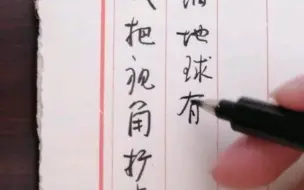 地球有
把视角扩